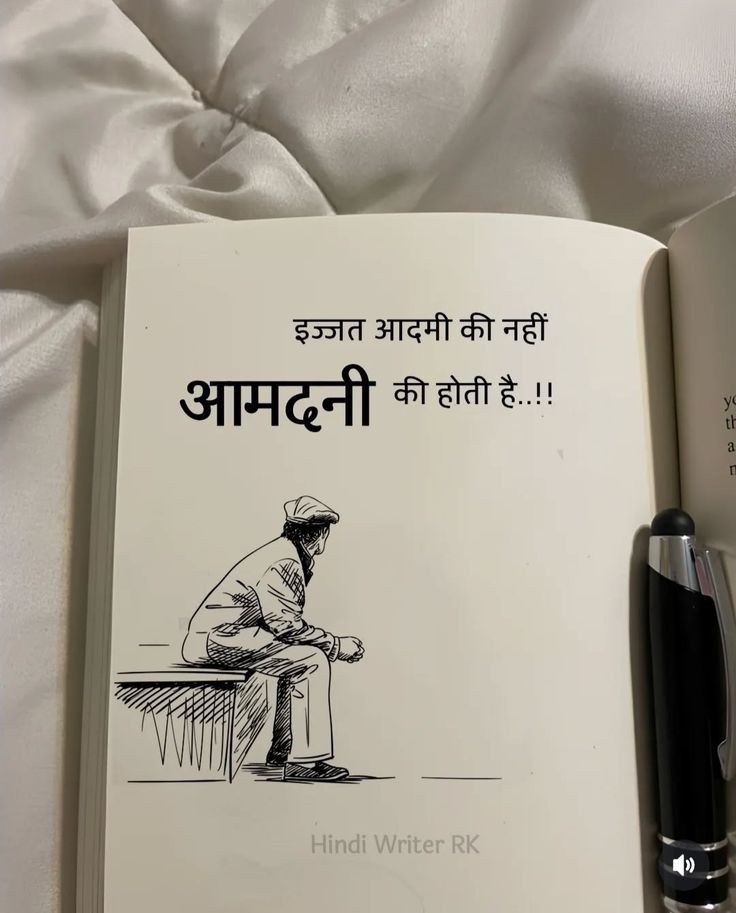 इज्जत आदमी की नहीं
आमदनी की होती है..!!
Hindi Writer RK